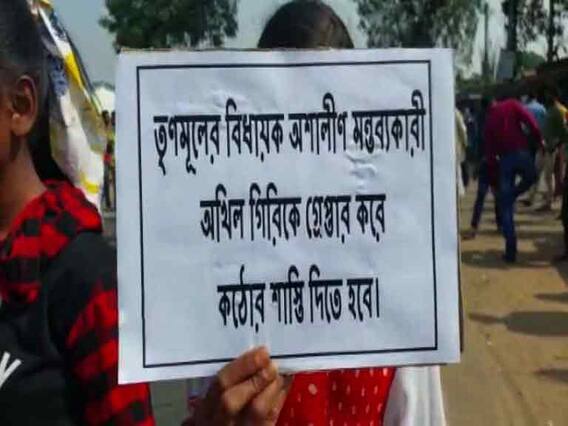 তৃণমূলের বিধায়ক অশালীণ মন্তব্যকারী
অখিল গিরিকে গ্রেপ্তার করে
কঠোর শাস্তি দিতে হবে।